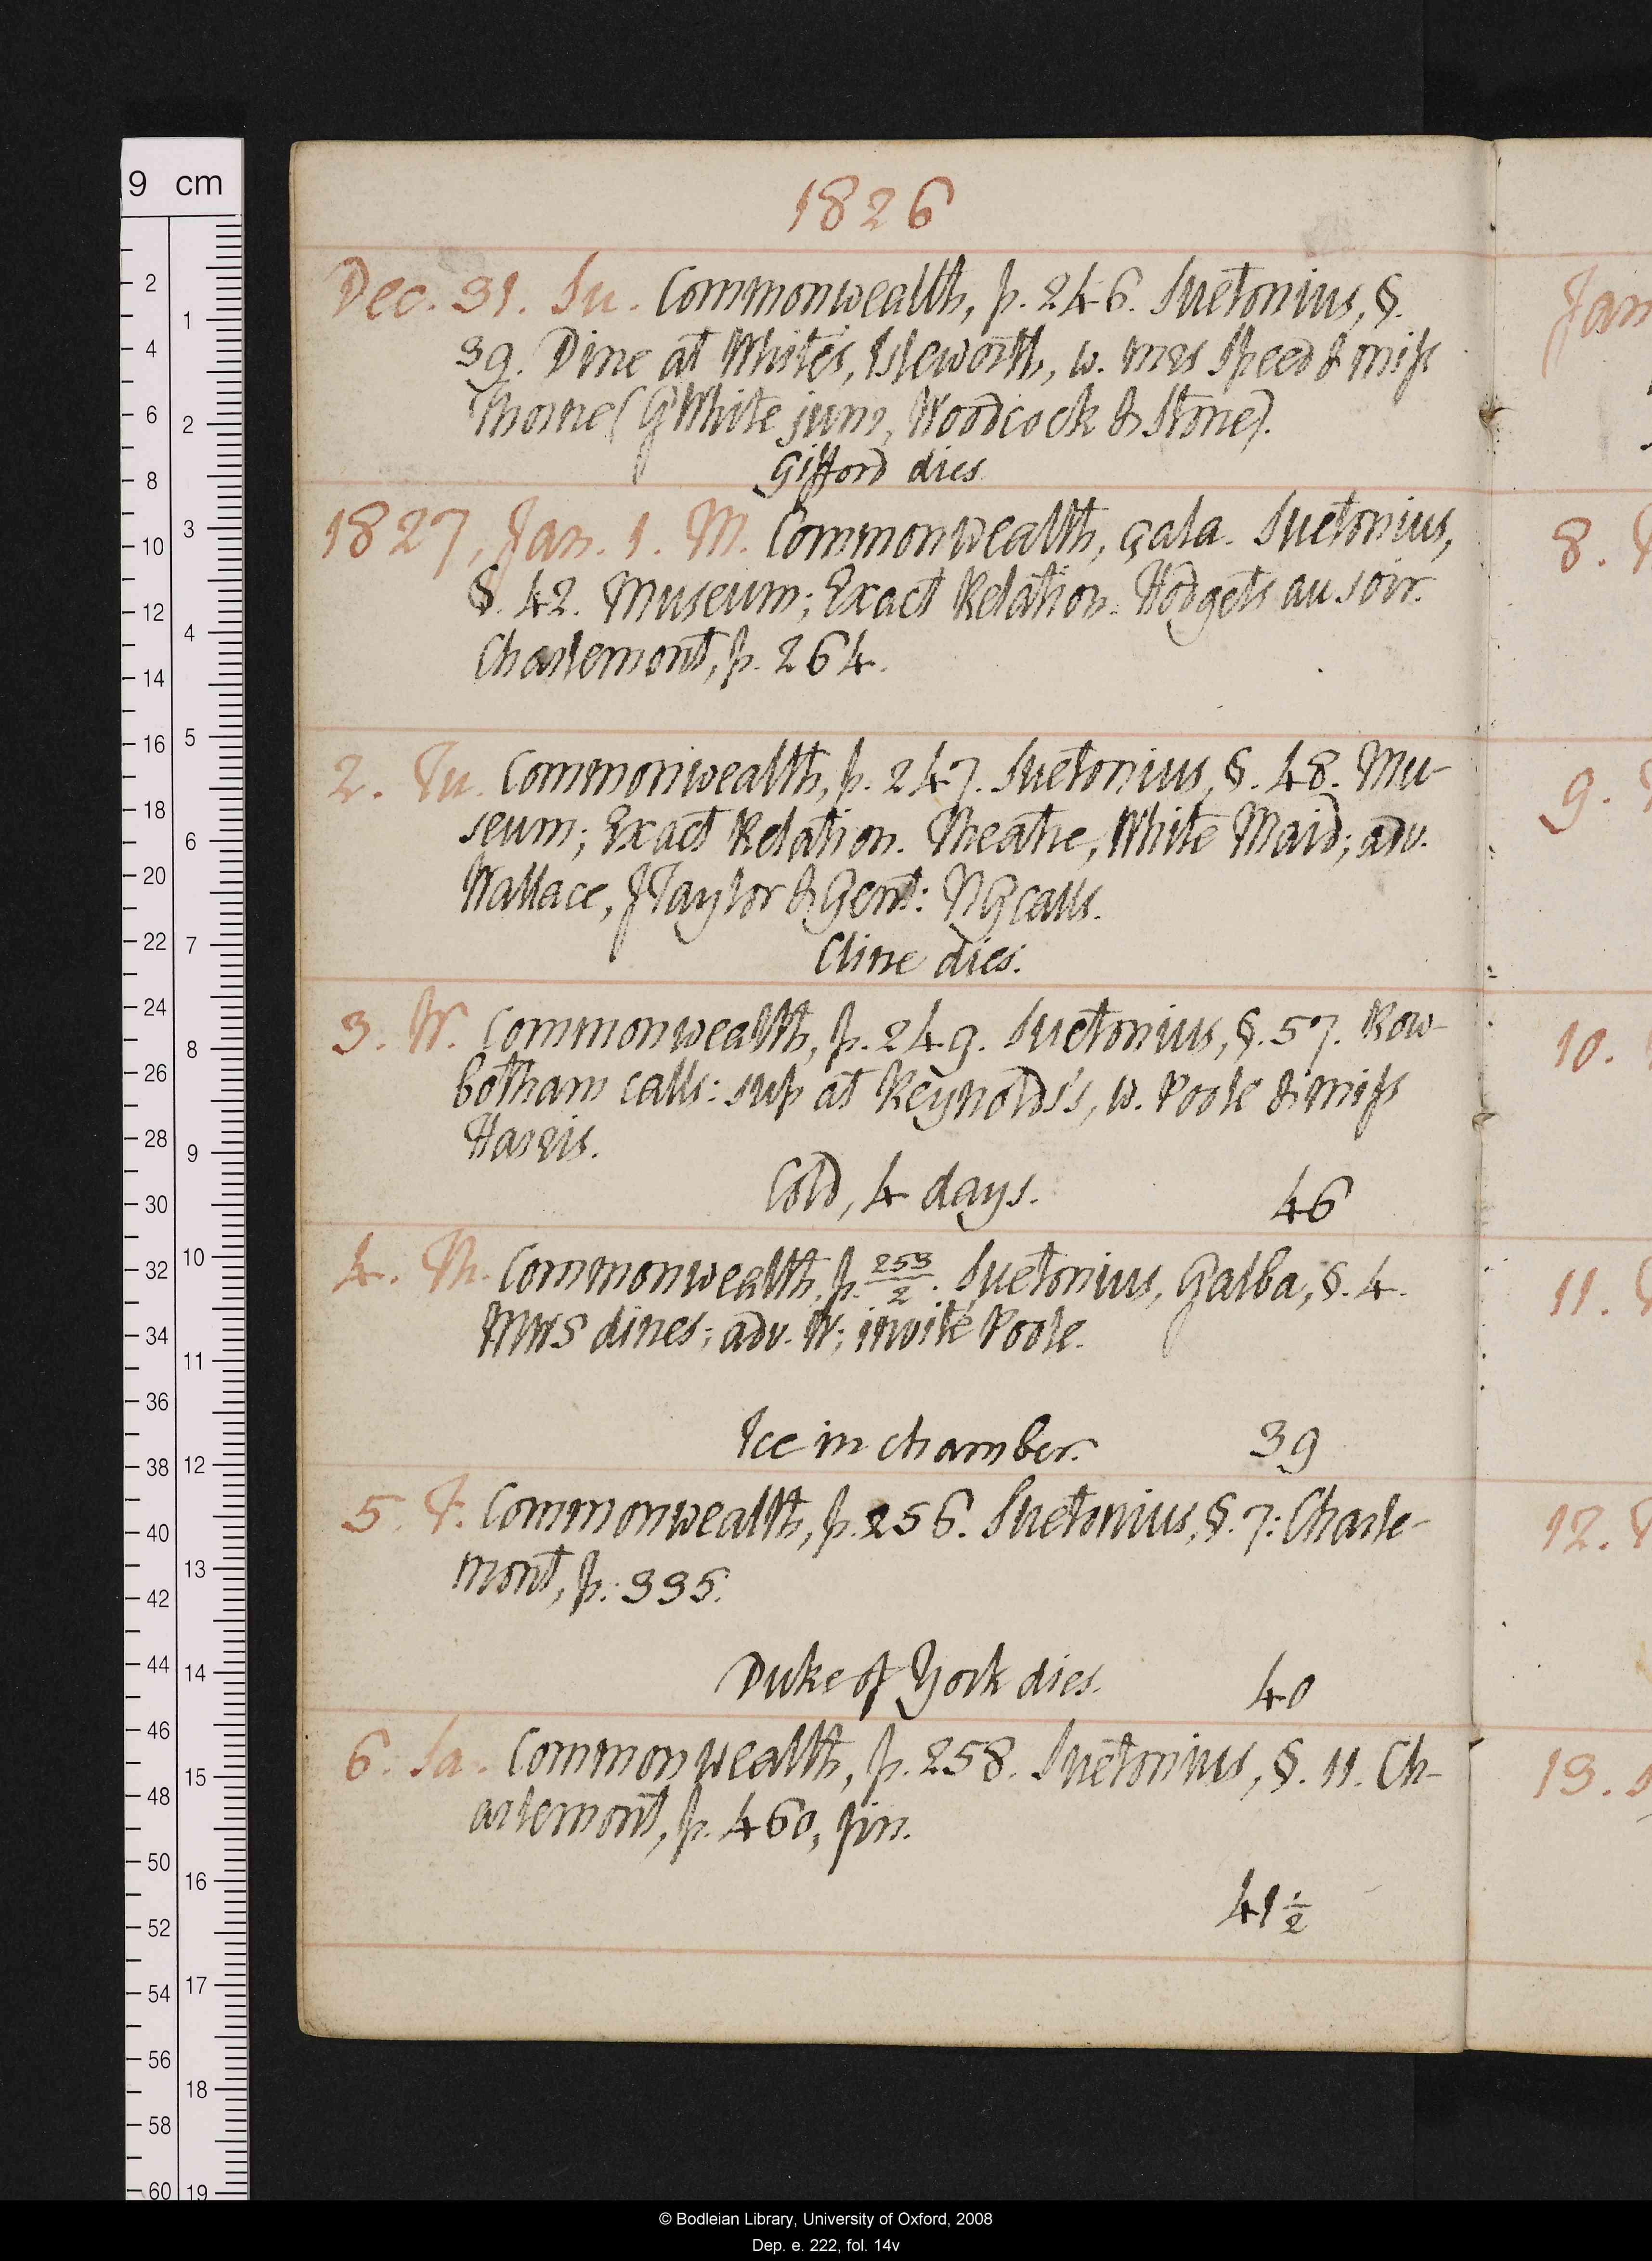 1826
Dec. 31. Su. Commonwealth, p. 246. Suetonius, §.
39. Dine at White's, Isleworth, w. mrs Speed & miss
Thorne (GWhite jun, Woodcock & Stone).
Gifford dies.
1827, Jan. 1. M. Commonwealth, çala. Suetonius,
§. 42. Museum; Exact Relation. Hodgets au soir.
Charlemont, p. 264.
2. Tu. Commonwealth, p. 247. Suetonius, §. 48. Mu-
seum; Exact Relation. Theatre, White Maid; adv.
Wallace, JTaylor & Gent: NG calls.
Cline dies.
3. W. Commonwealth, p. 249. Suetonius, §. 57. Row-
botham calls: sup at Reynolds's, w. Poole & miss
Harris.
Cold, 4 days. 46
4. Th. Commonwealth, p. 253/2. Suetonius, Galba, §. 4.
MWS dines; adv. W; invité Poole.
Ice in chamber. 39
5. F. Commonwealth, p. 256. Suetonius, §. 7: Charle-
mont, p. 335.
Duke of York dies. 40
6. Sa. Commonwealth, p. 258. Suetonius, §. 11. Ch-
arlemont, p. 460, fin.
41½
Jan
8.
9.
10.
11.
12.
13.
9 cm
2
4
6
8
10
12
14
16
18
20
22
24
26
28
30
32
34
36
38
40
42
44
46
48
50
52
54
56
58
60
1
2
3
4
5
6
7
8
9
10
11
12
13
14
15
16
17
18
19
© Bodleian Library, University of Oxford, 2008
Dep. e. 222, fol. 14v